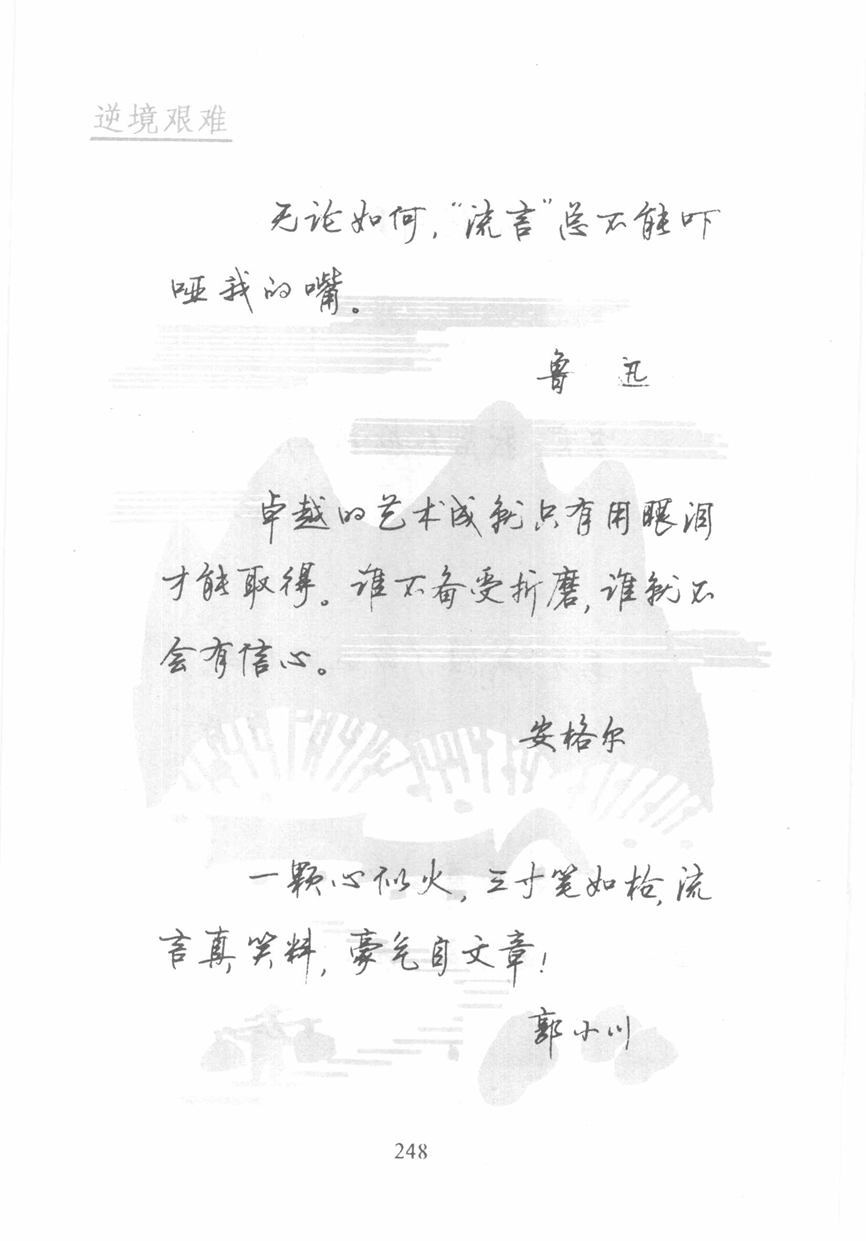 逆境艰难
无论如何，“流言”总不能吓
哑我的嘴。
鲁 迅
卓越的艺术成就只有用眼泪
才能取得。谁不备受折磨，谁就不
会有信心。
安格尔
一颗心似火，三寸笔如枪，流
言真笑料，豪气自文章！
郭小川
248